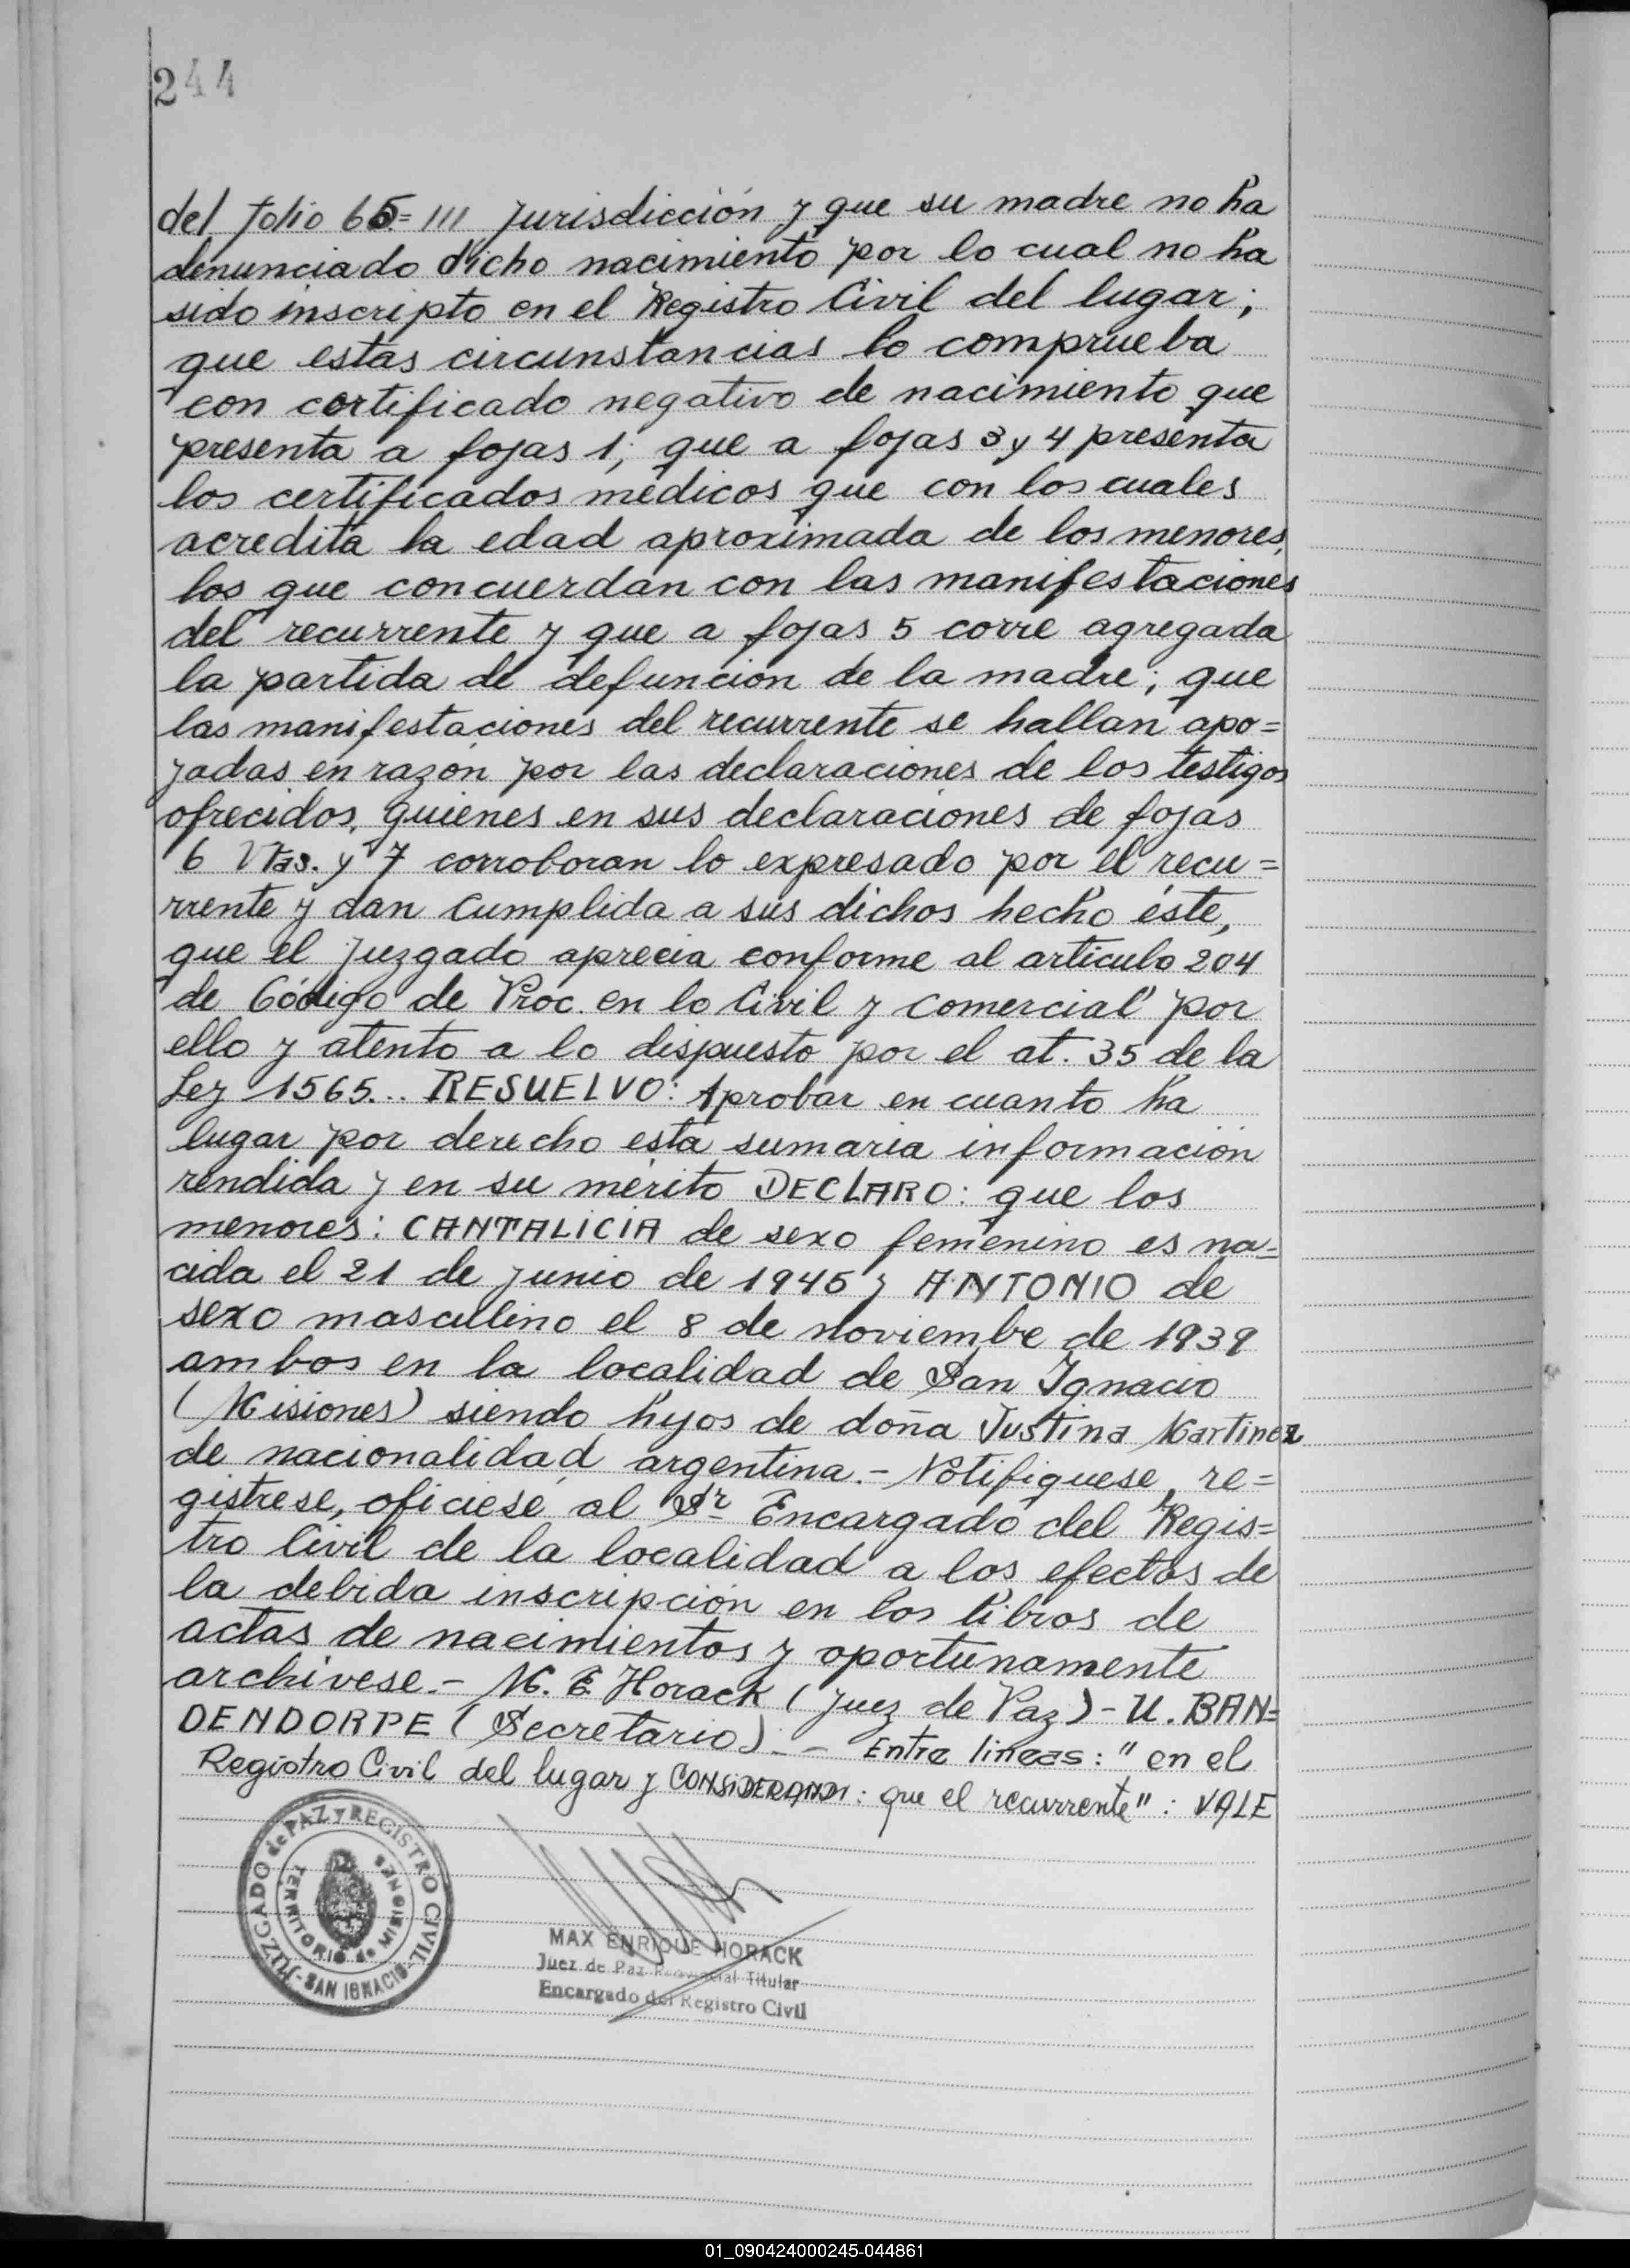 244
del folio 65= III Jurisdicción y que su madre no ha
denunciado dicho nacimiento por lo cual no ha
sido inscripto en el Registro Civil del lugar;
que estas circunstancias lo comprueba
con certificado negativo de nacimiento que
presenta a fojas 1; que a fojas 3 y 4 presenta
los certificados médicos que con los cuales
acredita la edad aproximada de los menores,
los que concuerdan con las manifestaciones
del recurrente y que a fojas 5 corre agregada
la partida de defunción de la madre; que
las manifestaciones del recurrente se hallan apo=
yadas en razón por las declaraciones de los testigos
ofrecidos, quienes en sus declaraciones de fojas
6 Vtas. y 7 corroboran lo expresado por el recu=
rrente y dan cumplida a sus dichos hecho éste,
que el juzgado aprecia conforme al artículo 204
de Código de Proc. en lo Civil y Comercial por
ello y atento a lo dispuesto por el at. 35 de la
Ley 1565... RESUELVO: Aprobar en cuanto ha
lugar por derecho esta sumaria información
rendida y en su mérito DECLARO: que los
menores: CANTALICIA de sexo femenino es na=
cida el 21 de junio de 1945 y ANTONIO de
sexo masculino el 8 de noviembre de 1939
ambos en la localidad de San Ignacio
(Misiones) siendo hijos de doña Justina Martinez
de nacionalidad argentina.- Notifíquese, re=
gistrese, ofíciese al Sr Encargado del Regis=
tro Civil de la localidad a los efectos de
la debida inscripción en los libros de
actas de nacimientos y oportunamente
archívese.- M. E. Horack (Juez de Paz) - U. BAN=
DENDORPE (Secretario).- - Entre líneas: "en el
Registro Civil del lugar y CONSIDERANDO: que el recurrente": VALE
JUZGADO de PAZ y REGISTRO CIVIL
TERRITORIO de MISIONES
-SAN IGNACIO-
MAX ENRIQUE HORACK
Juez de Paz Titular
Encargado del Registro Civil
01_090424000245-044861